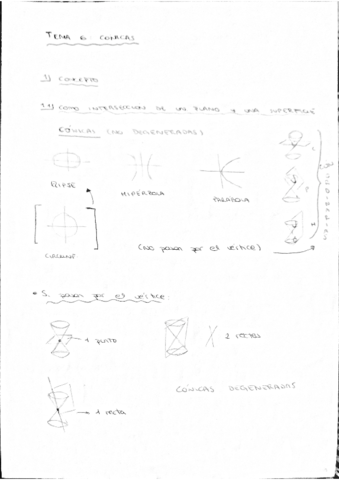 TEMA 6: CÓNICAS
1) CONCEPTO
1.1) COMO INTERSECCIÓN DE UN PLANO Y UNA SUPERFICIE
CÓNICAS (NO DEGENERADAS)
ELIPSE
HIPERBOLA
PARÁBOLA
(No pasan por el vértice)
• Si pasan por el vértice:
1 punto
2 rectas
1 recta
CÓNICAS DEGENERADAS